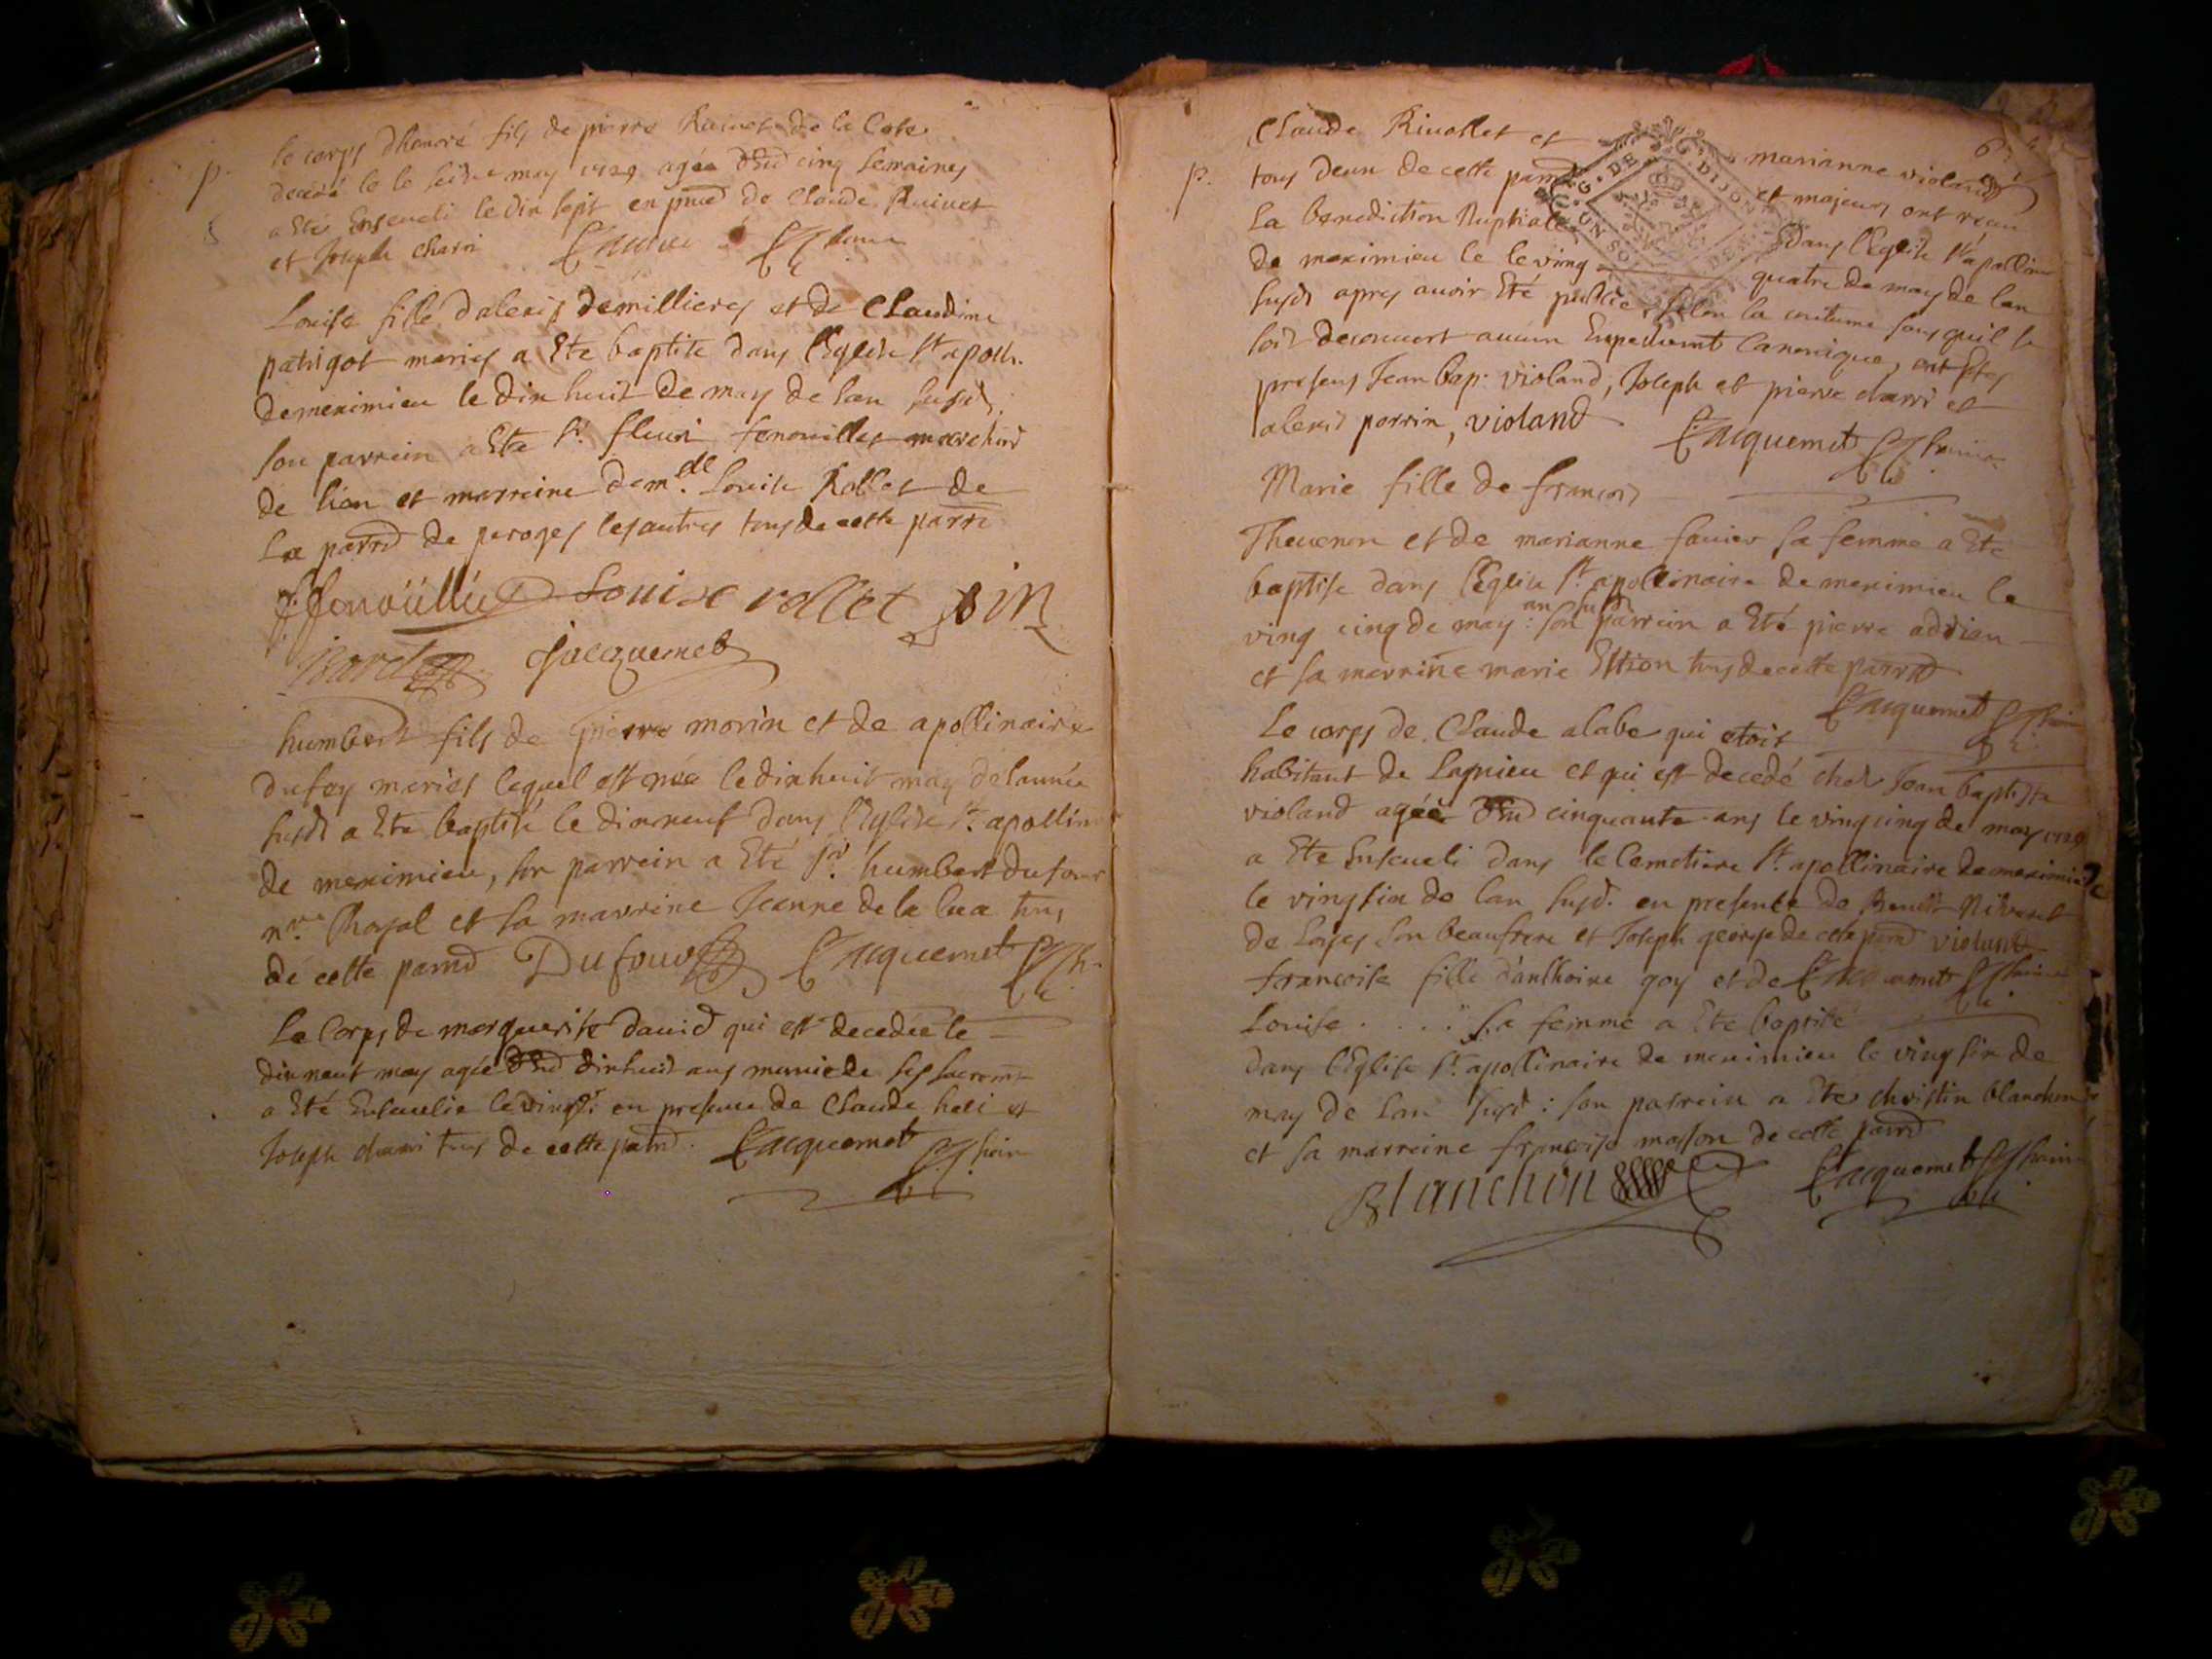 le corps dhonoré fils de pierre Ruinet de la Cote
decedé le le seize may 1729 agée denv cinq semaines
a Eté Enseueli le dix sept en pnce de Claude Ruinet
et Joseph charri
p.
Louise fille dalexis demillieres et de Claudine
patrigot maries a Ete baptise dans l'Eglise St apoll.
de meximieu le dix huit de may de lan susd.
son parrein a Ete Sr. fleuri fenouillet marchand
de lion et marreine demlle. Louise Rollet de
la parr. de peroges les autres tous de cette parr.
ffenoüillet Louise rollet
Jacquemet
humbert fils de pierre morin et de apollinaire
dufey maries lequel est née le dix huit may de lannée
susd. a Ete baptisé le dix neuf dans l'Eglise St. apollin
de meximieu, son parrein a Eté Sr. humbert dufour
nre. Royal et sa marreine Jeanne de la lua tous
de cette parr. Dufour Jacquemet
Le Corps de marguerite dauid qui est decedée le
dix neuf may agée denv dix huit ans munie de ses sacrem.
a Eté Enseuelie le vingt en presence de Claude heri et
Joseph charri tous de cette parr. Jacquemet
Claude Riuollet et marianne violand
p. tous deux de cette parr. et majeurs ont reçu
La benediction Nuptiale dans l'Eglise St apollin
de meximieu le le ving quatre de may de lan
susd. apres auoir Eté publiés selon la coutume sans quil se
soit decouuert aucun Empechement Canonique, ont Etes
presens Jean bap. violand, Joseph et pierre charri et
alexis perrin, violand Jacquemet
G. DE DIJON
Marie fille de francois
Theuenon et de marianne fauier sa femme a Eté
baptise dans l'Eglise St. apollinaire de meximieu le
ving cinq de may an susd. : son parrein a Eté pierre addrian
et sa marreine marie Ettion tous de cette parr.
Jacquemet
Le corps de Claude alabe qui etoit
habitant de Lagnieu et qui est decedé chez Jean baptiste
violand agée denv cinquante ans le ving cinq de may 1729
a Ete Enseueli dans le Cemetiere St. apollinaire de meximieu
le ving six de lan susd. en presence de
de Loyes son beaufrere et Joseph george de cette parr. violand
francoise fille d'anthoine goy et de Jacquemet
Louise . . . . sa femme a Ete baptisé
dans l'Eglise St. apollinaire de meximieu le ving six de
may de lan susd. : son parrein a Ete christin blanchon
et sa marreine francoise masson de cette parr.
Blanchon Jacquemet